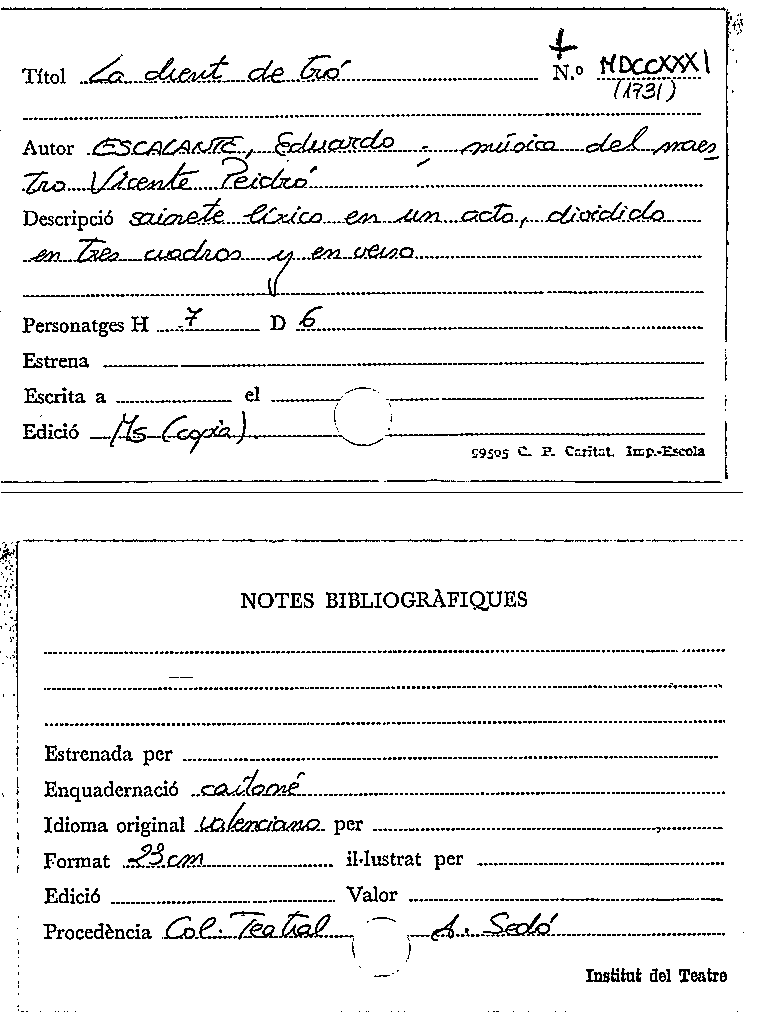 Títol La chent de tró N.º MDCCXXXI
(1731)
Autor ESCALANTE, Eduardo; música del maes
tro Vicente Peidró
Descripció sainete lírico en un acto, dividido
en tres cuadros y en verso
Personatges H 7 D 6
Estrena
Escrita a el
Edició Ms (copia)
59505 C. P. Caritat. Imp.-Escola
NOTES BIBLIOGRÀFIQUES
Estrenada per
Enquadernació cartoné
Idioma original valenciano per
Format 23 cm il·lustrat per
Edició Valor
Procedència Col. Teatral A. Sedó
Institut del Teatre